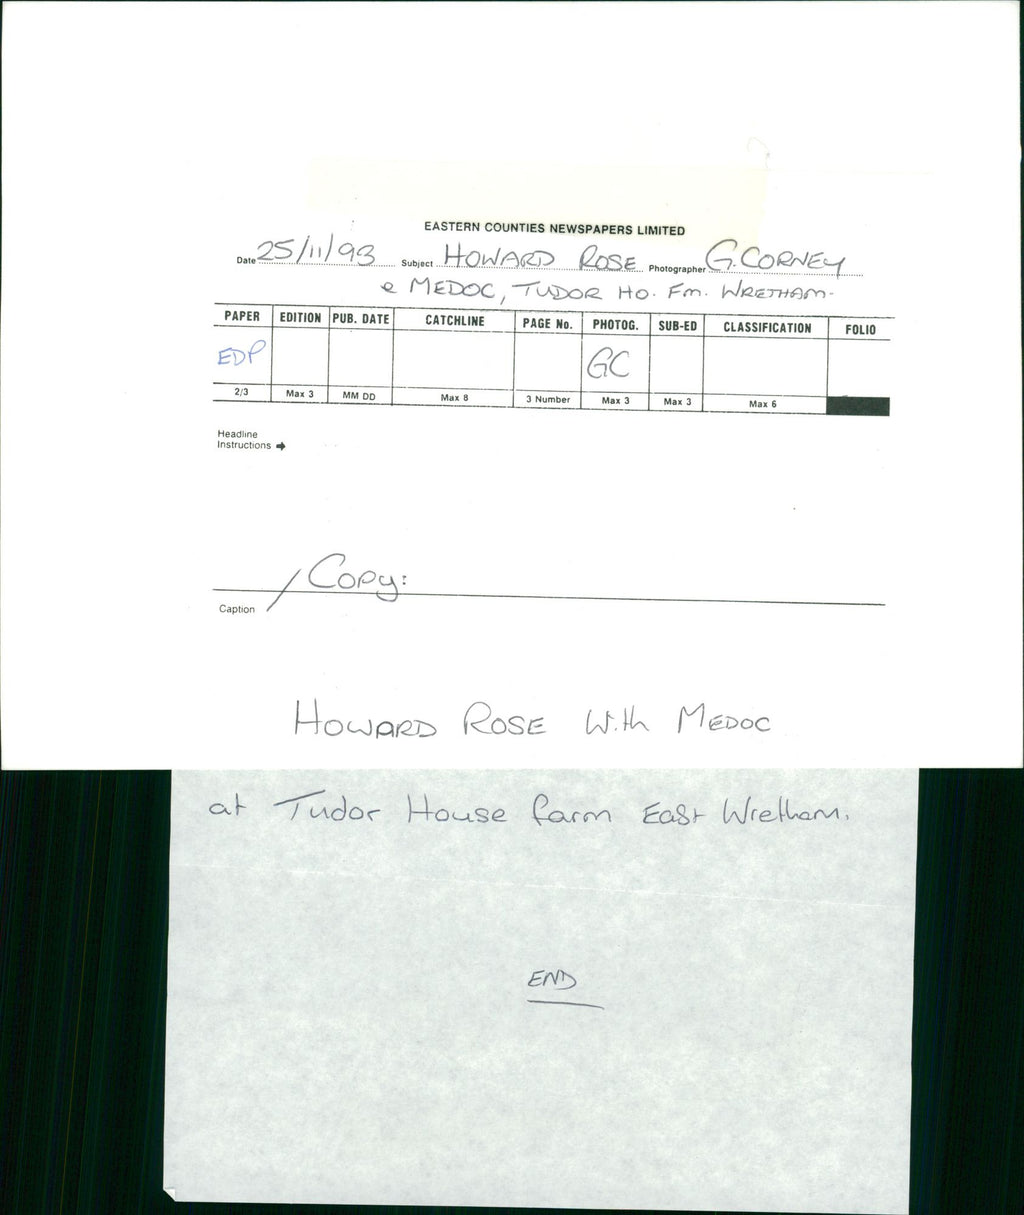 EASTERN COUNTIES NEWSPAPERS LIMITED
Date 25/11/93 Subject HOWARD ROSE Photographer G. CORNEY
& MEDOC, TUDOR HO. FM. WRETHAM.
PAPER EDITION PUB. DATE CATCHLINE PAGE No. PHOTOG. SUB-ED CLASSIFICATION FOLIO
EDP GC
2/3 Max 3 MM DD Max 8 3 Number Max 3 Max 3 Max 6
Headline
Instructions →
/ Copy:
Caption
HOWARD ROSE With MEDOC
at Tudor House farm East Wretham.
END